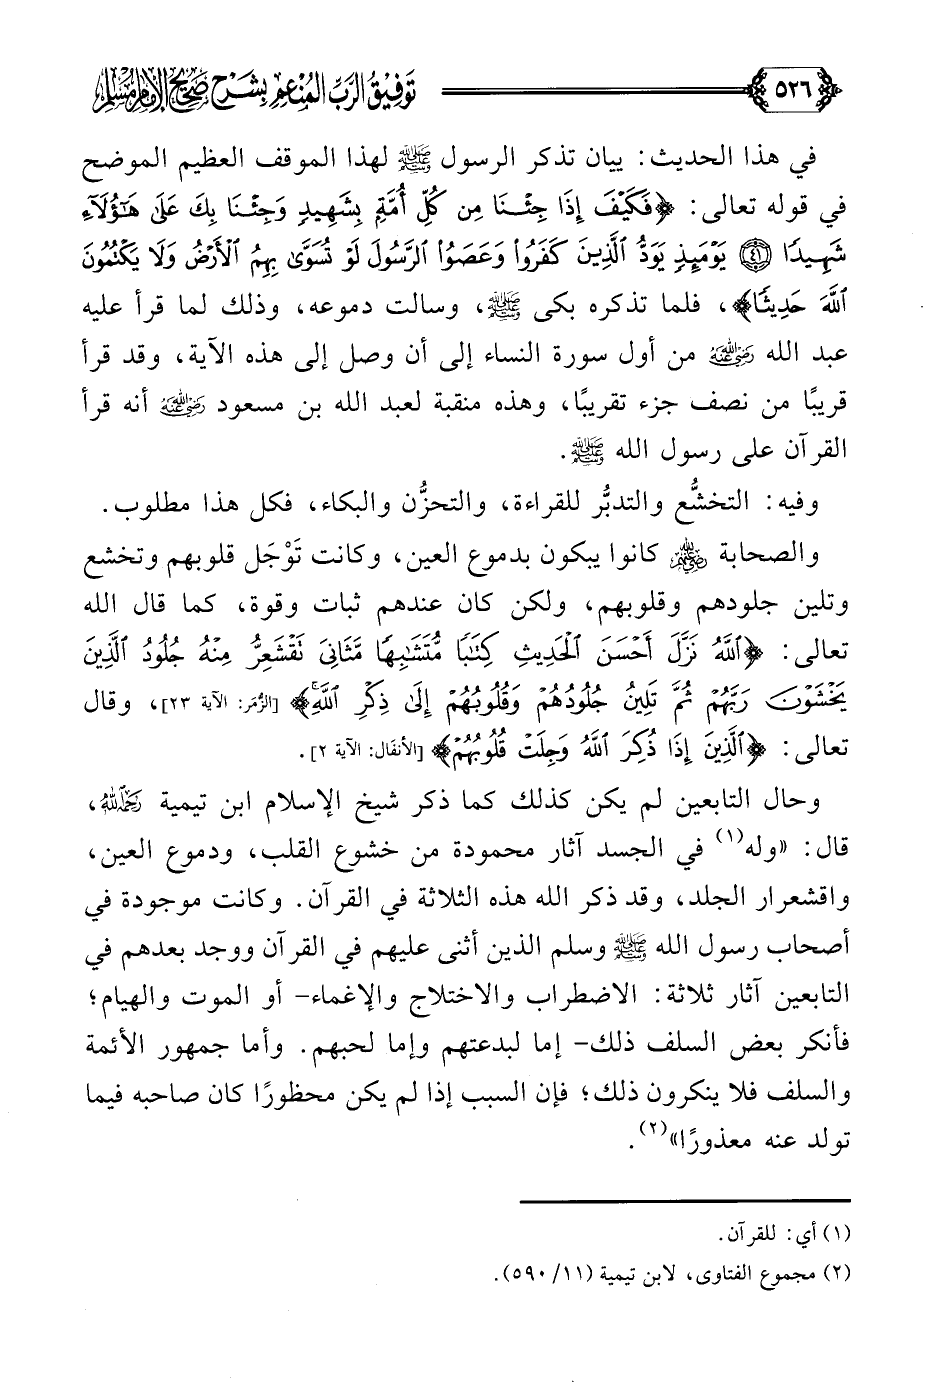 ٥٢٦ توفيق الرب المنعم بشرح صحيح الإمام مسلم
في هذا الحديث: بيان تذكر الرسول ﷺ لهذا الموقف العظيم الموضح
في قوله تعالى: ﴿فَكَيْفَ إِذَا جِئْنَا مِن كُلِّ أُمَّةٍ بِشَهِيدٍ وَجِئْنَا بِكَ عَلَىٰ هَٰٓؤُلَآءِ
شَهِيدًا ٤١ يَوْمَئِذٍ يَوَدُّ ٱلَّذِينَ كَفَرُوا۟ وَعَصَوُا۟ ٱلرَّسُولَ لَوْ تُسَوَّىٰ بِهِمُ ٱلْأَرْضُ وَلَا يَكْتُمُونَ
ٱللَّهَ حَدِيثًا﴾، فلما تذكره بكى ﷺ، وسالت دموعه، وذلك لما قرأ عليه
عبد الله رضي الله عنه من أول سورة النساء إلى أن وصل إلى هذه الآية، وقد قرأ
قريبًا من نصف جزء تقريبًا، وهذه منقبة لعبد الله بن مسعود رضي الله عنه أنه قرأ
القرآن على رسول الله ﷺ.
وفيه: التخشُّع والتدبُّر للقراءة، والتحزُّن والبكاء، فكل هذا مطلوب.
والصحابة رضي الله عنهم كانوا يبكون بدموع العين، وكانت تَوْجَل قلوبهم وتخشع
وتلين جلودهم وقلوبهم، ولكن كان عندهم ثبات وقوة، كما قال الله
تعالى: ﴿ٱللَّهُ نَزَّلَ أَحْسَنَ ٱلْحَدِيثِ كِتَٰبًا مُّتَشَٰبِهًا مَّثَانِىَ تَقْشَعِرُّ مِنْهُ جُلُودُ ٱلَّذِينَ
يَخْشَوْنَ رَبَّهُمْ ثُمَّ تَلِينُ جُلُودُهُمْ وَقُلُوبُهُمْ إِلَىٰ ذِكْرِ ٱللَّهِ﴾ [الزُّمَر: الآية ٢٣]، وقال
تعالى: ﴿ٱلَّذِينَ إِذَا ذُكِرَ ٱللَّهُ وَجِلَتْ قُلُوبُهُمْ﴾ [الأنفَال: الآية ٢].
وحال التابعين لم يكن كذلك كما ذكر شيخ الإسلام ابن تيمية رحمه الله،
قال: «وله(١) في الجسد آثار محمودة من خشوع القلب، ودموع العين،
واقشعرار الجلد، وقد ذكر الله هذه الثلاثة في القرآن. وكانت موجودة في
أصحاب رسول الله ﷺ وسلم الذين أثنى عليهم في القرآن ووجد بعدهم في
التابعين آثار ثلاثة: الاضطراب والاختلاج والإغماء- أو الموت والهيام؛
فأنكر بعض السلف ذلك- إما لبدعتهم وإما لحبهم. وأما جمهور الأئمة
والسلف فلا ينكرون ذلك؛ فإن السبب إذا لم يكن محظورًا كان صاحبه فيما
تولد عنه معذورًا»(٢).
(١) أي: للقرآن.
(٢) مجموع الفتاوى، لابن تيمية (١١/ ٥٩٠).